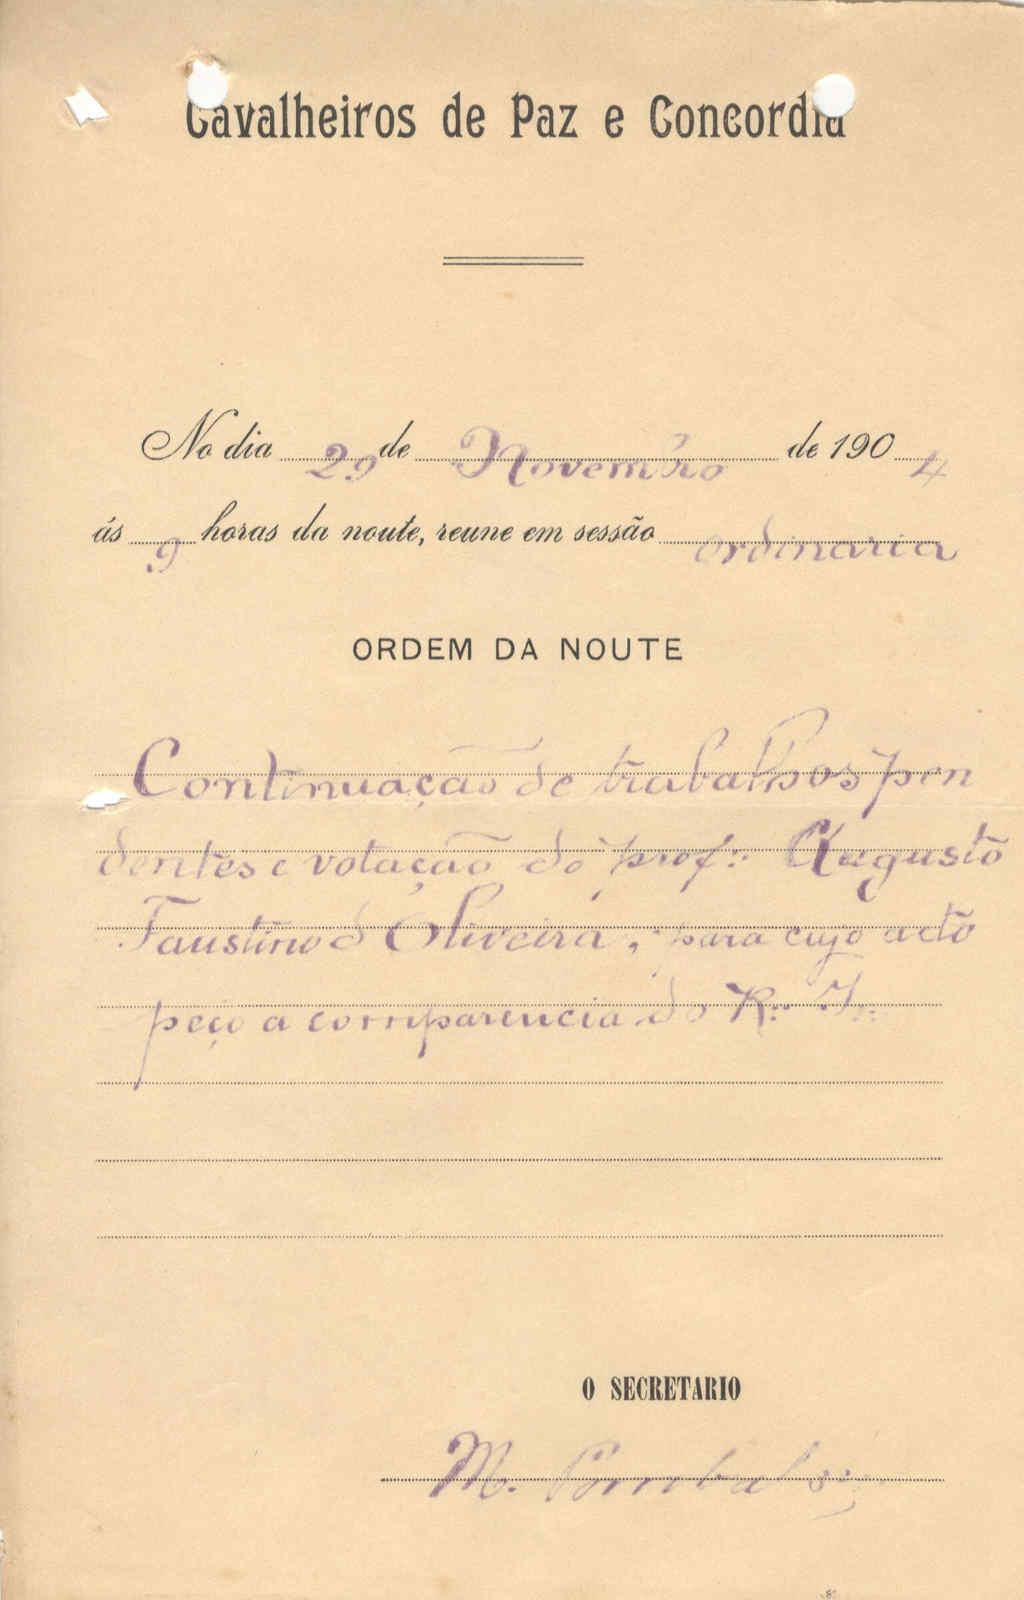 Cavalheiros de Paz e Concordia
No dia 29 de Novembro de 1904
ás 9 horas da noute, reune em sessão ordinaria
ORDEM DA NOUTE
Continuação de trabalhos pen
dentes e votação do prof∴ Augusto
Faustino d'Oliveira, para cujo acto
peço a comparencia do R∴ I∴
O SECRETARIO
M. Pombal